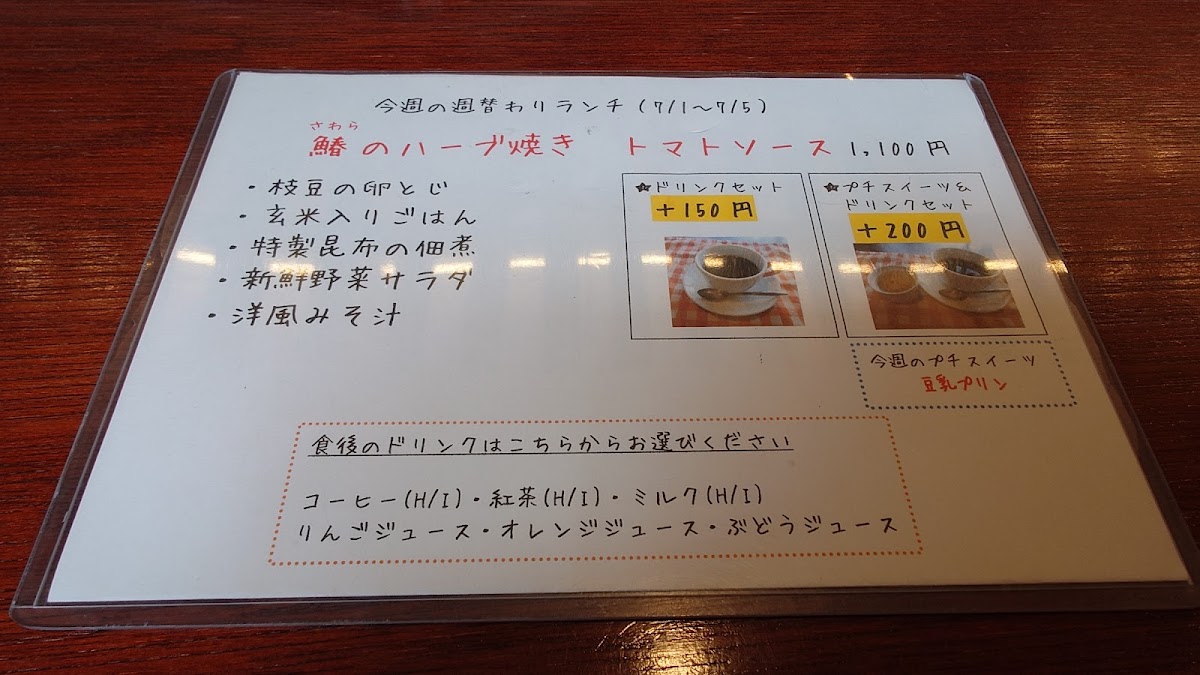 今週の週替わりランチ(7/1~7/5)
さわら
鰆のハーブ焼き トマトソース 1,100円
・枝豆の卵とじ
・玄米入りごはん
・特製昆布の佃煮
・新鮮野菜サラダ
・洋風みそ汁
★ドリンクセット
+150円
★プチスイーツ&
ドリンクセット
+200円
今週のプチスイーツ
豆乳プリン
食後のドリンクはこちらからお選びください
コーヒー(H/I)・紅茶(H/I)・ミルク(H/I)
りんごジュース・オレンジジュース・ぶどうジュース